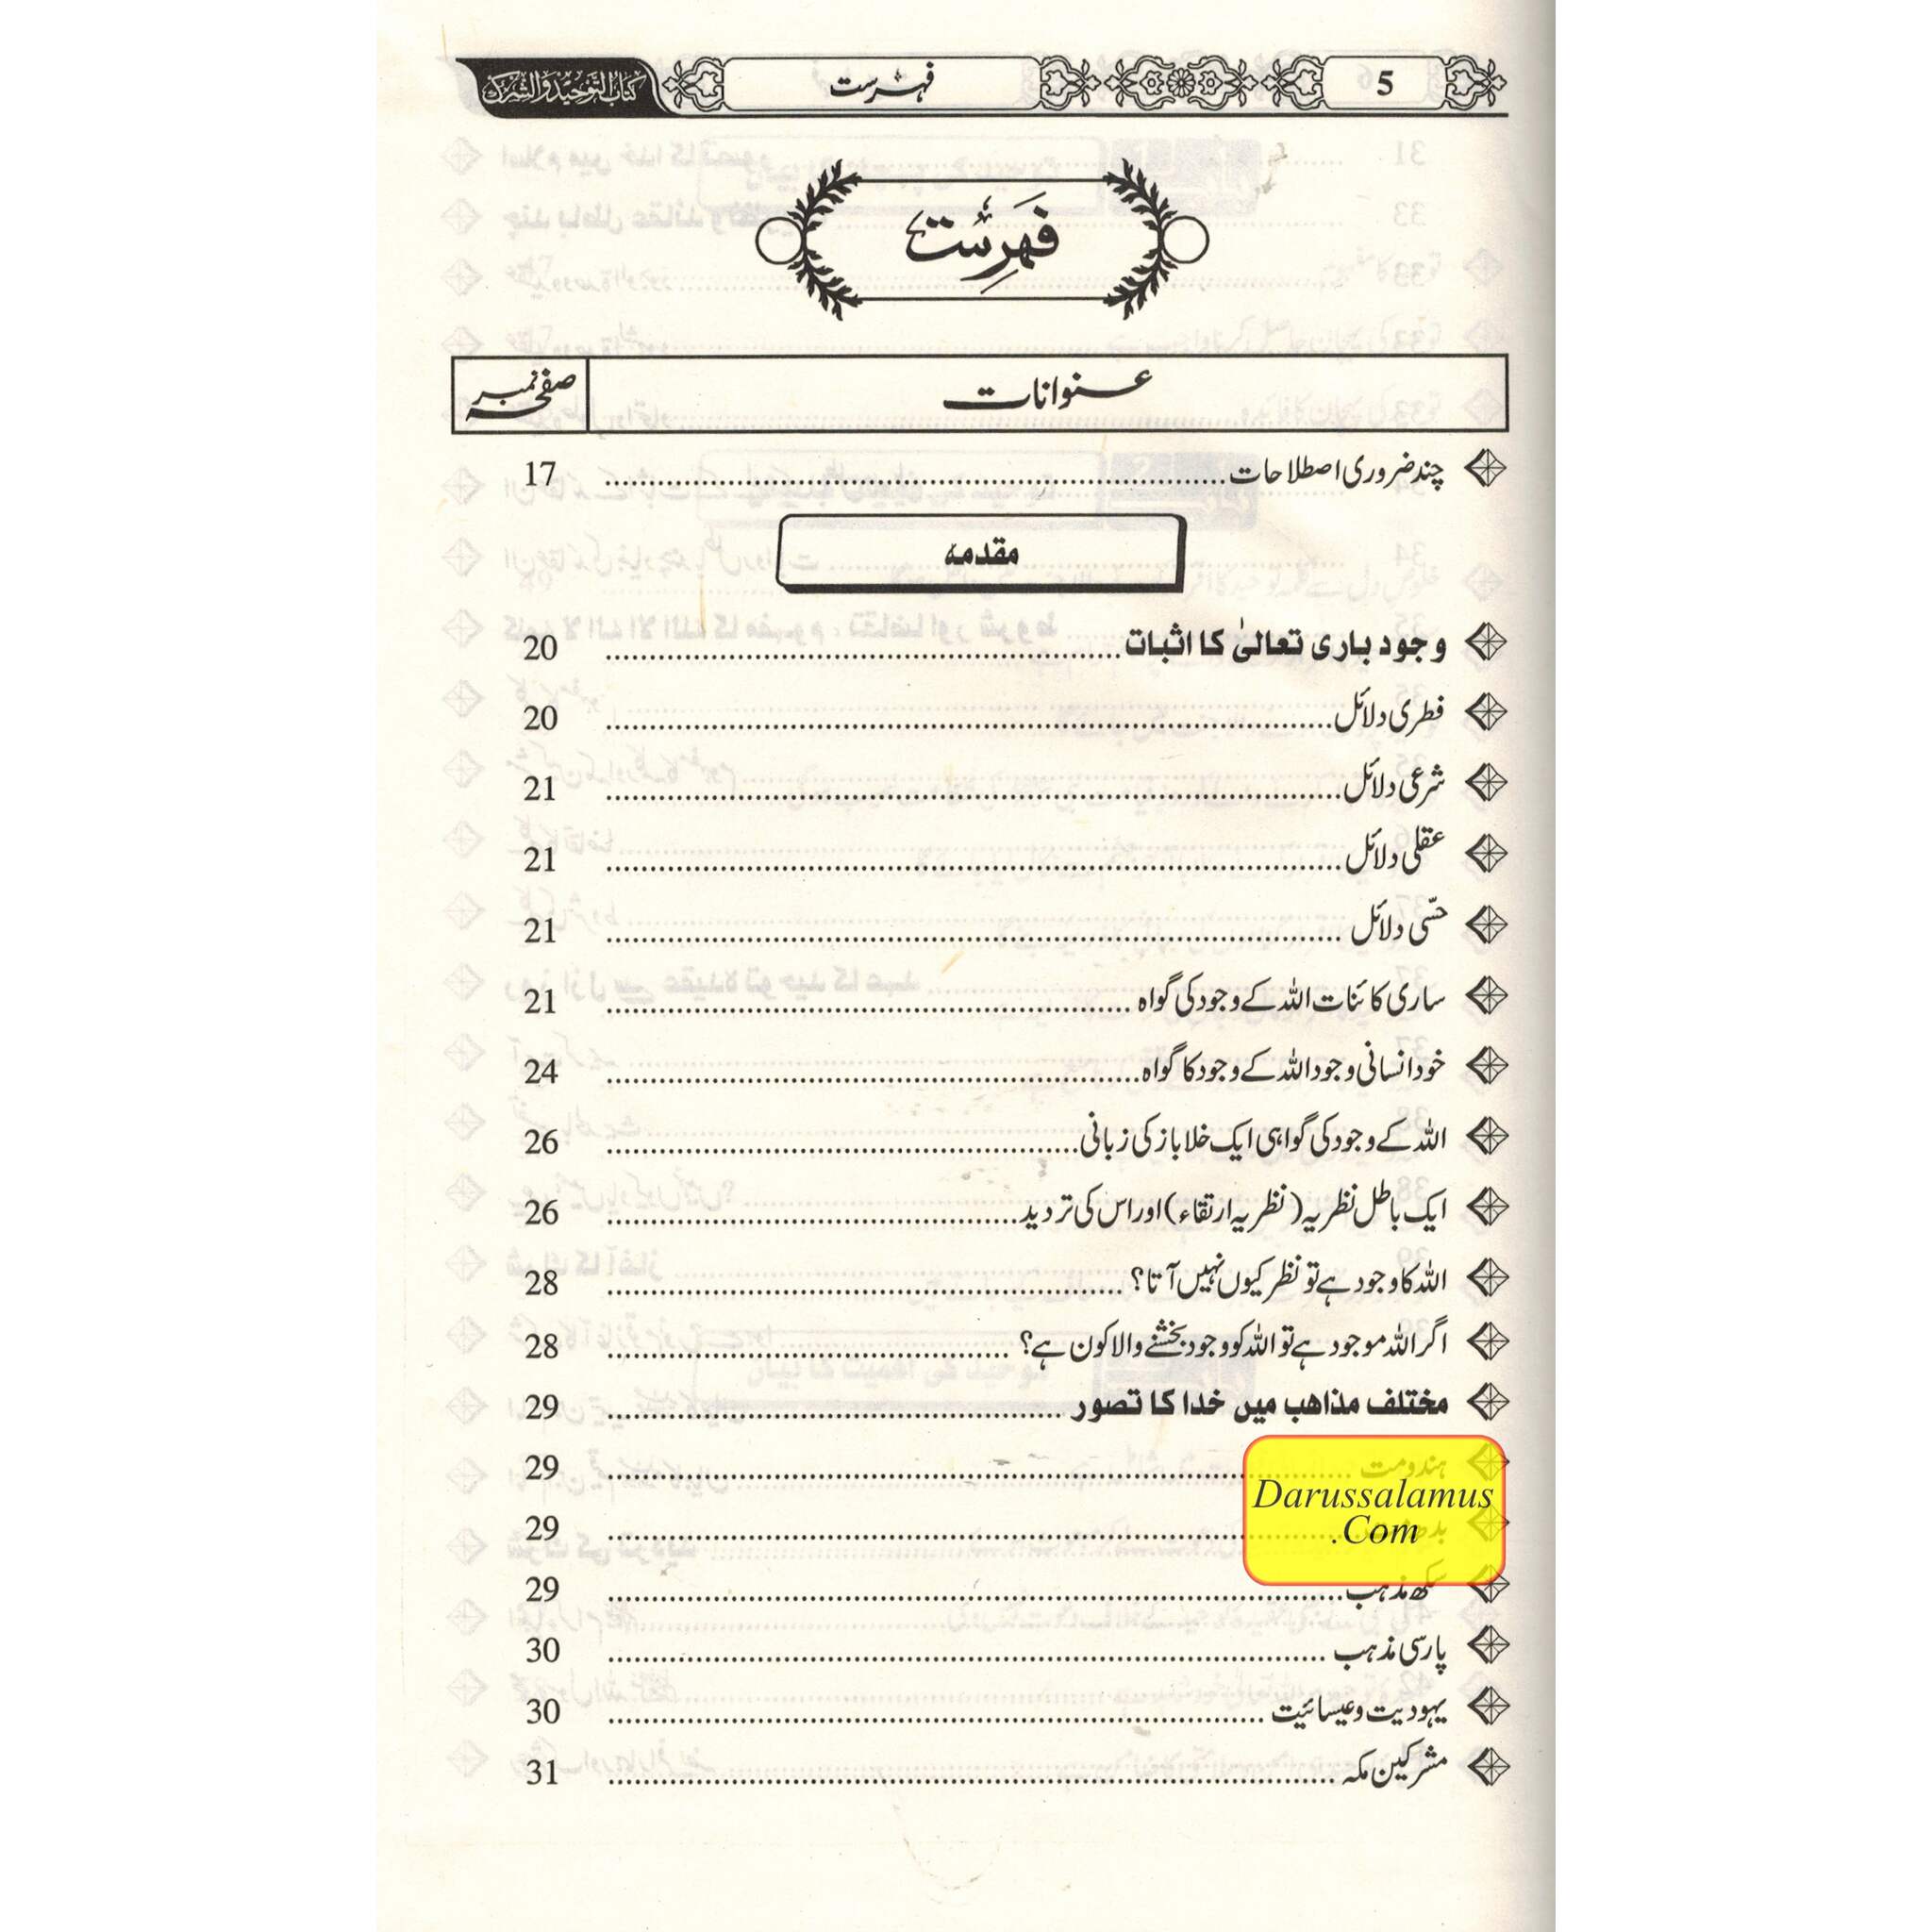 5 فہرست کتاب التوحید والشرک
فَہرِست
عنوانات صفحہ نمبر
چند ضروری اصطلاحات 17
مقدمہ
وجود باری تعالیٰ کا اثبات 20
فطری دلائل 20
شرعی دلائل 21
عقلی دلائل 21
حسّی دلائل 21
ساری کائنات اللہ کے وجود کی گواہ 21
خود انسانی وجود اللہ کے وجود کا گواہ 24
اللہ کے وجود کی گواہی ایک خلا باز کی زبانی 26
ایک باطل نظریہ (نظریہ ارتقاء) اور اس کی تردید 26
اللہ کا وجود ہے تو نظر کیوں نہیں آتا؟ 28
اگر اللہ موجود ہے تو اللہ کو وجود بخشنے والا کون ہے؟ 28
مختلف مذاهب میں خدا کا تصور 29
ہندومت 29
Darussalamus
.Com
29
سکھ مذہب 29
پارسی مذہب 30
یہودیت و عیسائیت 30
مشرکین مکہ 31